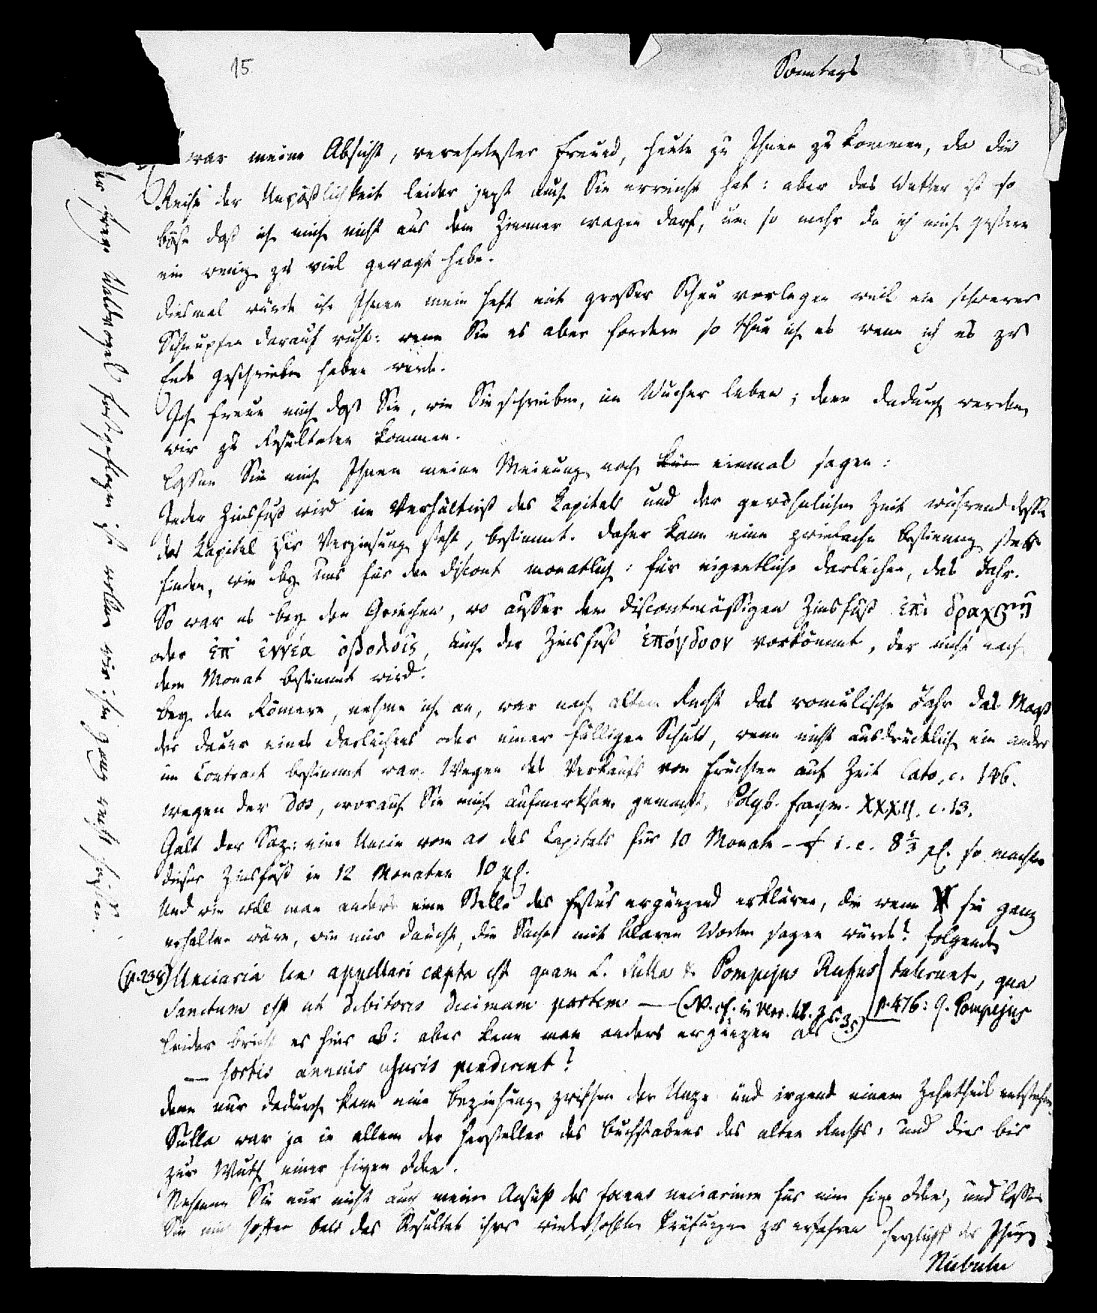 15.
Sonntags
war meine Absicht, verehrtester Freund, heute zu Ihnen zu kommen, da die
Reihe der Unpäßlichkeit leider jezt auch Sie erreicht hat: aber das Wetter ist so
böse daß ich mich nicht aus dem Zimmer wagen darf, um so mehr da ich mich gestern
ein wenig zu viel gewagt habe.
Diesmal würde ich Ihnen mein Heft mit grosser Scheu vorlegen weil ein schwerer
Schnupfen darauf ruht: wenn Sie es aber fordern so thue ich es wenn ich es zu
Ende geschrieben haben werde.
Ich freue mich daß Sie, wie Sie schreiben, im Wucher leben; denn dadurch werden
wir zu Resultaten kommen.
Lassen Sie mich Ihnen meine Meinung noch einmal sagen:
Jeder Zinsfuß wird im Verhältniß des Capitals und der gewöhnlichen Zeit während dessen
das Capital zur Verzinsung steht, bestimmt. Daher kann eine zweifache Bestimmung statt
finden, wie bey uns für den Discont monatlich: für eigentliche Darleihen, das Jahr.
So war es bey den Griechen, wo ausser dem discontmässigen Zinsfuß ἐπὶ δραχμῇ
oder ἐπ' ἐννέα ὀβολοῖς, auch der Zinsfuß ἐπόγδοον vorkommt, der nicht nach
dem Monat bestimmt wird.
Bey den Römern, nehme ich an, war nach altem Recht das romulische Jahr das Maaß
der Dauer eines Darleihens oder einer fälligen Schuld, wenn nicht ausdrücklich ein andres
im Contract bestimmt war. Wegen des Verkaufs von Früchten auf Zeit Cato, c. 146.
wegen der Dos, worauf Sie mich aufmerksam gemacht, Polyb. fragm. XXXII. c. 13.
Galt der Saz: eine Uncie vom as des Capitals für 10 Monate — i. e. 8⅓ pC. so machte
dieser Zinsfuß in 12 Monaten 10 pC.
Und wie will man anders eine Stelle des Festus ergänzend erklären, die wenn sie ganz
erhalten wäre, wie mir däucht, die Sache mit klaren Worten sagen würde? folgende
Unciaria lex appellari caepta est quam L. Sulla & Pompejus Rufus tulerunt, qua
sanctum est ut debitores decimam partem —
p. 476: Q. Pompejus
Leider bricht es hier ab: aber kann man anders ergänzen als
— sortis annuis usuris penderent?
denn nur dadurch kann eine Beziehung zwischen der Unze und irgend einem Zehntheil entstehen.
Sulla war ja in allem der Hersteller des Buchstabens des alten Rechts, und dies bis
zur Wuth einer fixen Idee.
Nehmen Sie nur nicht auch meine Ansicht des foenus unciarium für eine fixe Idee, und lassen
Sie mich hoffen bald das Resultat ihrer wiederhohlten Prüfungen zu erfahren herzlichst der Ihrige
Niebuhr